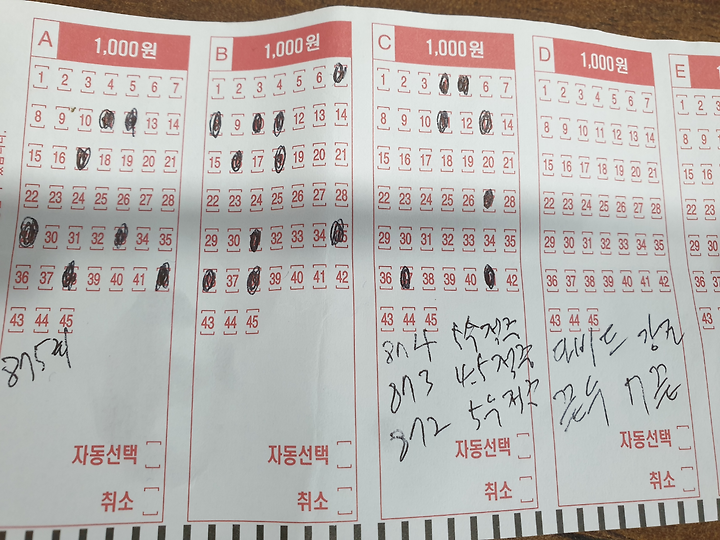 A 1,000원
1 2 3 4 5 6 7
8 9 10 13 14
15 16 18 19 20 21
22 23 24 25 26 27 28
30 31 32 34 35
36 37 39 40 41
43 44 45
875회
자동선택
취소
B 1,000원
1 2 3 4 5 6
9 12 13 14
15 17 19 20 21
22 23 24 25 26 27 28
29 30 32 33 34
37 39 40 41 42
43 44 45
자동선택
취소
C 1,000원
1 2 3 6 7
8 9 10 12 14
15 16 17 18 19 20 21
22 23 24 25 26 28
29 30 31 32 33 34 35
36 38 39 40 42
43 44 45
874 5수적중
873 4.5적중
872 5수적중
자동선택
취소
D 1,000원
1 2 3 4 5 6 7
8 9 10 11 12 13 14
15 16 17 18 19 20 21
22 23 24 25 26 27 28
29 30 31 32 33 34 35
36 37 38 39 40 41 42
43 44 45
자동선택
취소
E
1 2
8 9
15
22
29
36 37
43